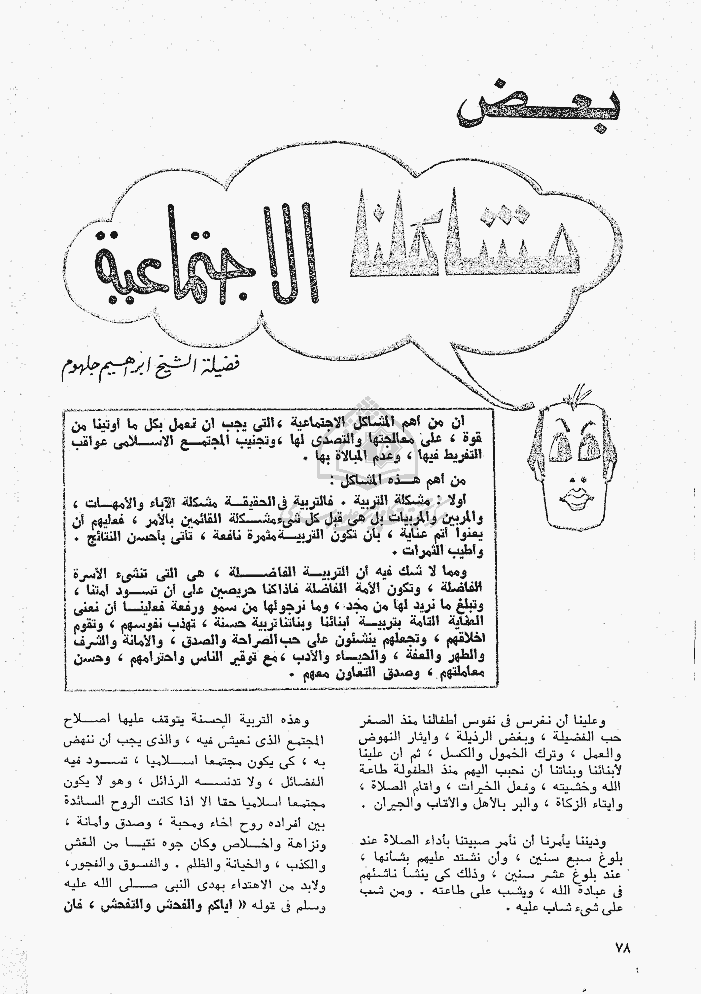 بعض
مشاكلنا الاجتماعية
فضيلة الشيخ ابراهيم جلهوم
ان من أهم المشاكل الاجتماعية ، التى يجب ان نعمل بكل ما أوتينا من
قوة ، على معالجتها والتصدى لها ، وتجنيب المجتمع الاسلامى عواقب
التفريط فيها ، وعدم المبالاة بها .
من أهم هذه المشاكل :
أولا : مشكلة التربية . فالتربية فى الحقيقة مشكلة الآباء والأمهات ،
والمربين والمربيات بل هى قبل كل شىء مشكلة القائمين بالأمر ، فعليهم أن
يعنوا أتم عناية ، بأن تكون التربية مثمرة نافعة ، تأتى بأحسن النتائج .
وأطيب الثمرات .
ومما لا شك فيه أن التربية الفاضلة ، هى التى تنشىء الأسرة
الفاضلة ، وتكون الأمة الفاضلة فاذا كنا حريصين على أن تسود أمتنا ،
وتبلغ ما نريد لها من مجد ، وما نرجو لها من سمو ورفعة فعلينا أن نعنى
العناية التامة بتربية أبنائنا وبناتنا تربية حسنة ، تهذب نفوسهم ، وتقوم
اخلاقهم ، وتجعلهم ينشئون على حب الصراحة والصدق ، والأمانة والشرف
والطهر والعفة ، والحياء والأدب ، مع توقير الناس واحترامهم ، وحسن
معاملتهم ، وصدق التعاون معهم .
وعلينا أن نغرس فى نفوس أطفالنا منذ الصغر
حب الفضيلة ، وبغض الرذيلة ، وايثار النهوض
والعمل ، وترك الخمول والكسل ، ثم ان علينا
لأبنائنا وبناتنا أن نحبب اليهم منذ الطفولة طاعة
الله وخشيته ، وفعل الخيرات ، واقام الصلاة ،
وايتاء الزكاة ، والبر بالأهل والأقاب والجيران .
وديننا يأمرنا أن نأمر صبيتنا بأداء الصلاة عند
بلوغ سبع سنين ، وأن نشتد عليهم بشأنها ،
عند بلوغ عشر سنين ، وذلك كى ينشأ ناشئهم
فى عبادة الله ، ويشب على طاعته . ومن شب
على شىء شاب عليه .
وهذه التربية الحسنة يتوقف عليها اصلاح
المجتمع الذى نعيش فيه ، والذى يجب ان ننهض
به ، كى يكون مجتمعا اسلاميا ، تسود فيه
الفضائل ، ولا تدنسه الرذائل ، وهو لا يكون
مجتمعا اسلاميا حقا الا اذا كانت الروح السائدة
بين أفراده روح اخاء ومحبة ، وصدق وأمانة ،
ونزاهة واخلاص وكان جوه نقيا من الغش
والكذب ، والخيانة والظلم . والفسوق والفجور،
ولابد من الاهتداء بهدى النبى صلى الله عليه
وسلم فى قوله « اياكم والفحش والتفحش ، فان
٧٨